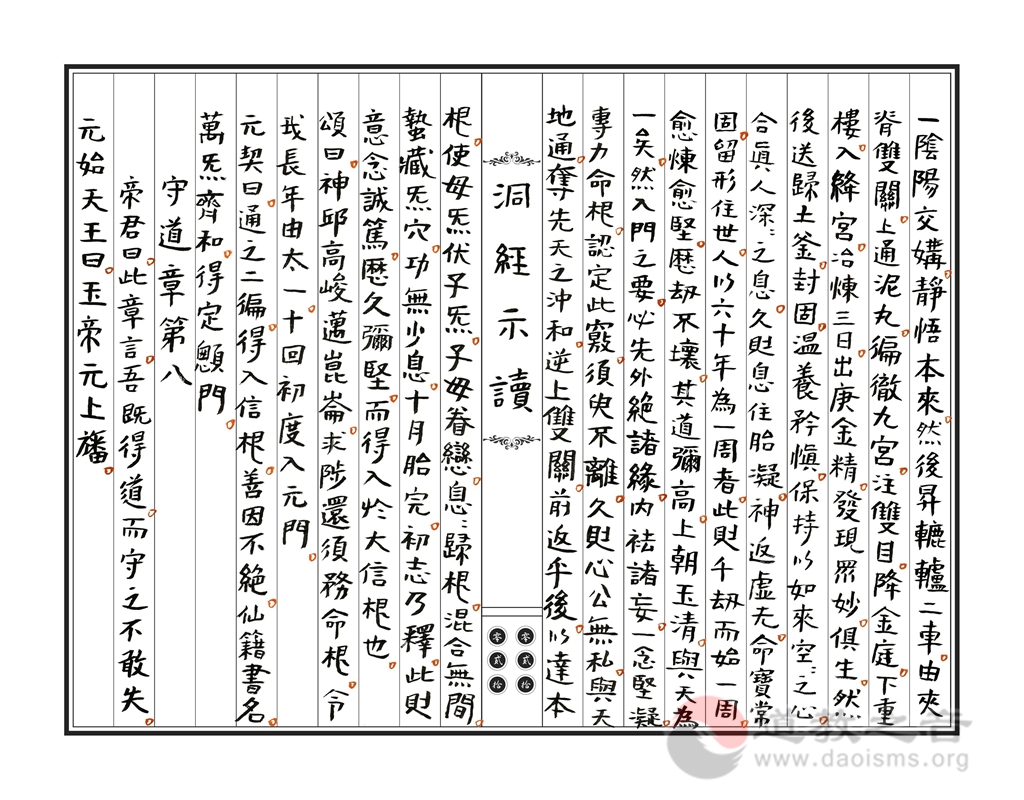 一陰陽交媾靜悟本來然後昇轆轤二車由夾
脊雙關上通泥丸徧徹九宮注雙目降金庭下重
樓入絳宮冶煉三日出庚金精發現眾妙俱生然
後送歸土釜封固溫養矜慎保持以如來空:之心
合真人深:之息久則息住胎凝神返虛无命寶常
固留形住世人以六十年為一周者此則千劫而始一周
愈煉愈堅歷劫不壞其道彌高上朝玉清與天為
一矣然入門之要必先外絕諸緣內袪諸妄一念堅凝
專力命根認定此竅須臾不離久則心公無私與天
地通奪先天之沖和逆上雙關前返乎後以達本
洞經示讀
零貳拾
零貳拾
根使母炁伏子炁子母眷戀息:歸根混合無間
蟄藏炁穴功無少息十月胎完初志乃釋此則
意念誠篤歷久彌堅而得入於大信根也
頌曰神邱高峻邁崑崙求陟還須務命根令
我長年由太一十回初度入元門
元契曰通之二徧得入信根善因不絕仙籍書名
萬炁齊和得定顖門
守道章第八
帝君曰此章言吾既得道而守之不敢失
元始天王曰玉帝元上旛
道教之音
www.daoisms.org